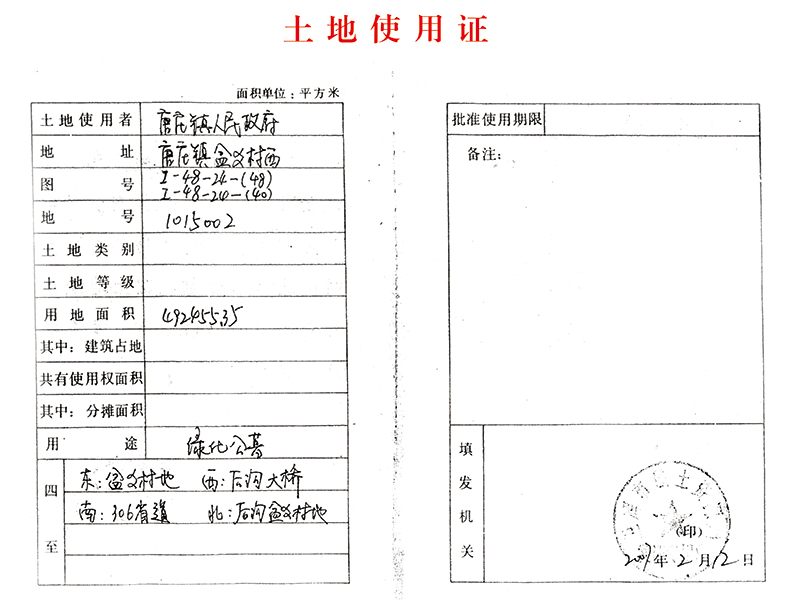 土地使用证
面积单位：平方米
土地使用者 唐庄镇人民政府
地址 唐庄镇盆义村西
图号 I-48-24-(48)
I-48-24-(40)
地号 1015002
土地类别
土地等级
用地面积
其中：建筑占地
共有使用权面积
其中：分摊面积
用途 绿化公墓
四至
东：盆义村地 西：后沟大桥
南：306省道 北：后沟盆义村地
批准使用期限
备注：
填发机关
(印)
年2月12日